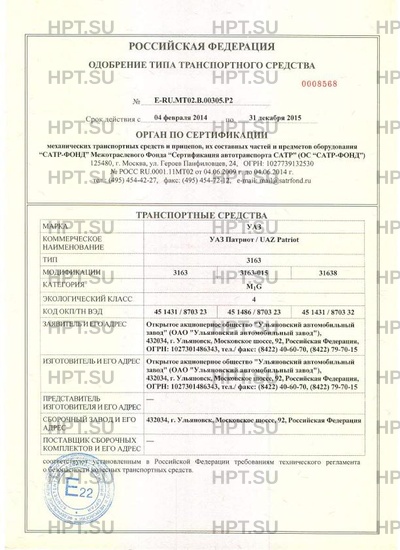 РОССИЙСКАЯ ФЕДЕРАЦИЯ
ОДОБРЕНИЕ ТИПА ТРАНСПОРТНОГО СРЕДСТВА
0008568
№ E-RU.MT02.B.00305.P2
Срок действия с 04 февраля 2014 по 31 декабря 2015
ОРГАН ПО СЕРТИФИКАЦИИ
механических транспортных средств и прицепов, их составных частей и предметов оборудования
"САТР-ФОНД" Межотраслевого Фонда "Сертификация автотранспорта САТР" (ОС "САТР-ФОНД")
125480, г. Москва, ул. Героев Панфиловцев, 24, ОГРН: 1027739132530
№ РОСС RU.0001.11МТ02 от 04.06.2009 до 04.06.2014 г.
тел: (495) 454-42-27, факс: (495) 454-72-12, e-mail: mail@satrfond.ru
ТРАНСПОРТНЫЕ СРЕДСТВА
МАРКА УАЗ
КОММЕРЧЕСКОЕ НАИМЕНОВАНИЕ УАЗ Патриот / UAZ Patriot
ТИП 3163
МОДИФИКАЦИИ 3163 3163-015 31638
КАТЕГОРИЯ M₁G
ЭКОЛОГИЧЕСКИЙ КЛАСС 4
КОД ОКП/ТН ВЭД 45 1431 / 8703 23 45 1486 / 8703 23 45 1431 / 8703 32
ЗАЯВИТЕЛЬ И ЕГО АДРЕС Открытое акционерное общество "Ульяновский автомобильный
завод" (ОАО "Ульяновский автомобильный завод"),
432034, г. Ульяновск, Московское шоссе, 92, Российская Федерация,
ОГРН: 1027301486343, тел./ факс: (8422) 40-60-70, (8422) 79-70-15
ИЗГОТОВИТЕЛЬ И ЕГО АДРЕС Открытое акционерное общество "Ульяновский автомобильный
завод" (ОАО "Ульяновский автомобильный завод"),
432034, г. Ульяновск, Московское шоссе, 92, Российская Федерация,
ОГРН: 1027301486343, тел./ факс: (8422) 40-60-70, (8422) 79-70-15
ПРЕДСТАВИТЕЛЬ
ИЗГОТОВИТЕЛЯ И ЕГО АДРЕС —
СБОРОЧНЫЙ ЗАВОД И ЕГО
АДРЕС 432034, г. Ульяновск, Московское шоссе, 92, Российская Федерация
ПОСТАВЩИК СБОРОЧНЫХ
КОМПЛЕКТОВ И ЕГО АДРЕС —
соответствуют установленным в Российской Федерации требованиям технического регламента
о безопасности колесных транспортных средств.
E 22
HPT.SU